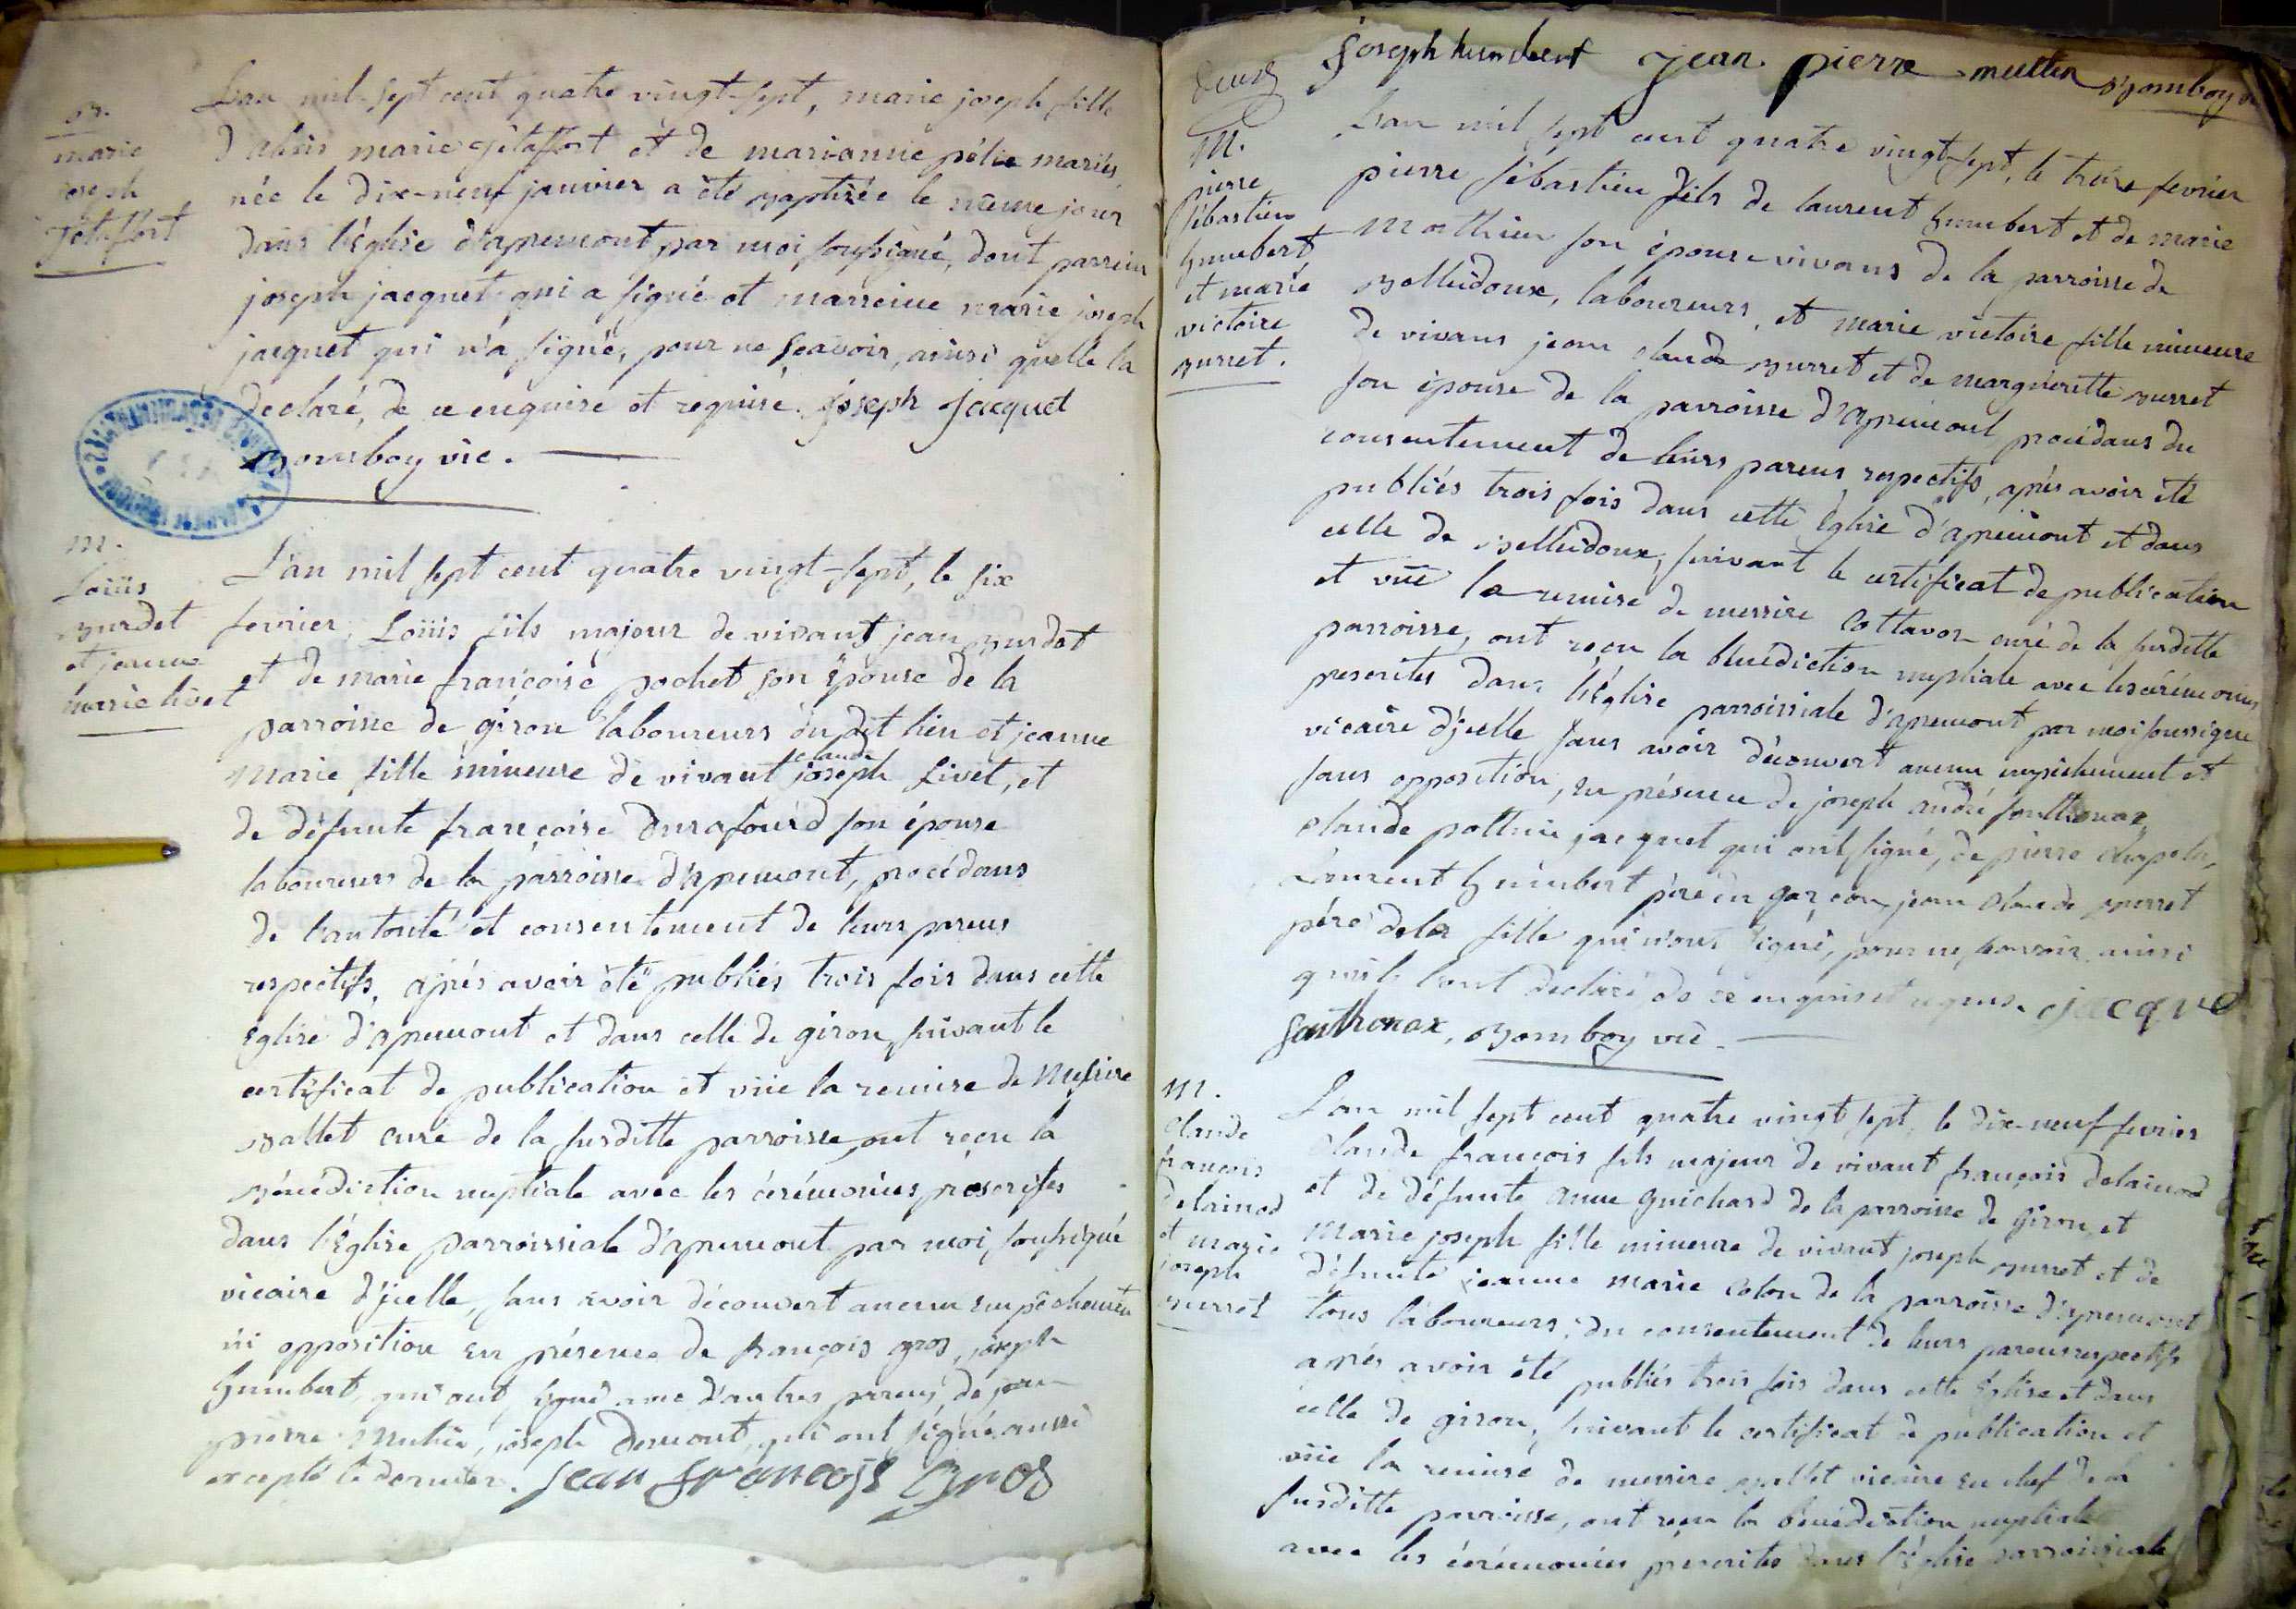 B.
marie
joseph
Jétaffort
L'an mil sept cent quatre vingt-sept, marie joseph fille
d'alexis marie Jétaffort et de marianne mariés
née le dix-neuf janvier a été baptisée le même jour
dans l'église d'apremont par moi soussigné, dont parrein
joseph jacquet qui a signé et marreine marie joseph
jacquet qui n'a signé, pour ne sçavoir, ainsi quelle l'a
declaré, de ce enquise et requise. joseph jacquet
Bomboy vic.
m.
Loüis
Burdet
et jeanne
marie livet
L'an mil sept cent quatre vingt-sept, le six
fevrier, Loüis fils majeur de vivant jean Burdet
et de marie françoise pochet son épouse de la
parroisse de giron laboureurs du dit lieu et jeanne
claude
marie fille mineure de vivant joseph Livet, et
de défunte françoise Durafourd son épouse
laboureurs de la parroisse d'apremont, procédans
de l'autorité et consentement de leurs parens
respectifs, après avoir été publiés trois fois dans cette
Eglise d'apremont et dans celle de giron, suivant le
certificat de publication et vüe la remise de messire
Ballet curé de la susditte parroisse, ont reçu la
Bénédiction nuptiale avec les cérémonies prescrites
dans l'Eglise parroissiale d'apremont par moi soussigné
vicaire d'jcelle, sans avoir découvert aucun empêchement
ni opposition en présence de françois gros, joseph
humbert, qui ont signé avec d'autres parens, de jean
pierre joseph Demont, qui ont signé aussi
excepté le dernier. jean françois Gros
joseph humbert jean pierre Bomboy
deux
m.
pierre
sébastien
humbert
et marie
victoire
Burret.
L'an mil sept cent quatre vingt-sept, le treize fevrier
pierre sébastien fils de laurent humbert et de marie
mathieu son épouse vivans de la parroisse de
Belleidoux, laboureurs, et marie victoire fille mineure
de vivans jean claude Burret et de margueritte Burret
son épouse de la parroisse d'apremont procédans du
consentement de leurs parens respectifs, après avoir été
publiés trois fois dans cette Eglise d'apremont et dans
celle de Belleidoux, suivant le certificat de publication
et vüe la remise de messire Cottavoz curé de la susditte
parroisse, ont reçu la bénédiction nuptiale avec les cérémonies
prescrites dans l'Eglise parroissiale d'apremont par moi soussigné
vicaire d'jcelle sans avoir découvert aucun empêchement et
sans opposition, en présence de joseph andré sonthonax
claude jacquet qui ont signé, de pierre
Laurent humbert père du garçon, jean claude Burret
père de la fille qui n'ont signé, pour ne sçavoir ainsi
qu'ils l'ont declaré de ce enquis et requis. jacque
sonthonax, Bomboy vic.
m.
claude
françois
delainod
et marie
joseph
Burret
L'an mil sept cent quatre vingt sept, le dix-neuf fevrier
claude françois fils majeur de vivant françois delainod
et de défunte anne guichard de la parroisse de giron, et
marie joseph fille mineure de vivant joseph Burret et de
défunte jeanne marie colon de la parroisse d'apremont
tous laboureurs, du consentement de leurs parens respectifs
après avoir été publiés trois fois dans cette Eglise et dans
celle de giron, suivant le certificat de publication et
vüe la remise de messire Ballet vicaire en chef de la
susditte parroisse, ont reçu la bénédiction nuptiale
avec les cérémonies prescrites dans l'Eglise parroissiale